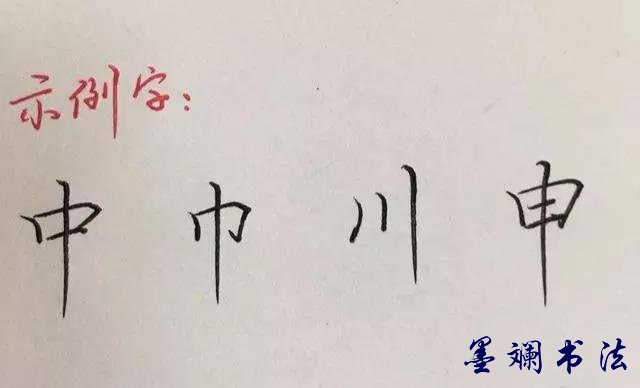 示例字:
中 巾 川 申
墨斓书法